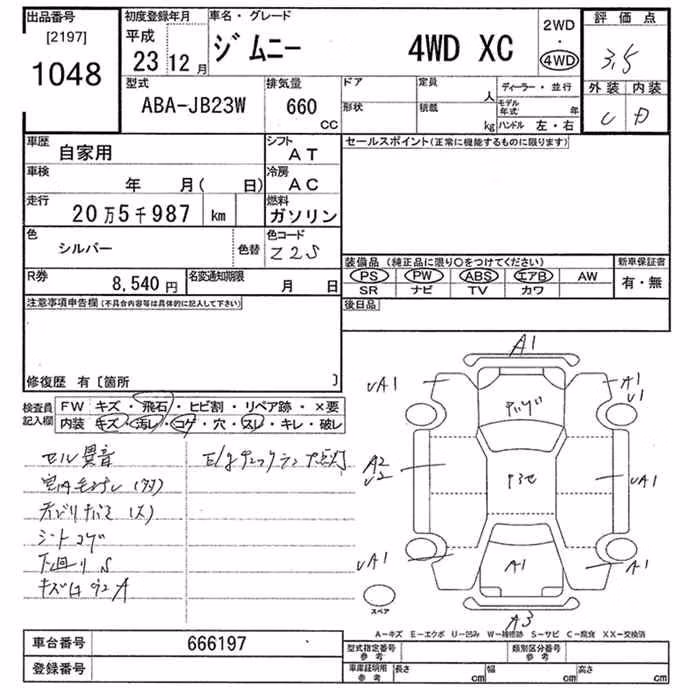 出品番号
[2197]
1048
初度登録年月
平成
23 12 月
車名・グレード
ジムニー 4WD XC
2WD
・
4WD
評価点
3.5
外装 内装
C D
型式
ABA-JB23W
排気量
660
CC
ドア
定員
人
形状
積載
kg
ディーラー・並行
モデル年式 年
ハンドル 左・右
車歴
自家用
シフト
AT
車検
年 月( 日)
冷房
AC
走行
20万5千987 km
燃料
ガソリン
色
シルバー
色替
色コード
Z2S
R券
8,540 円
名変通知期限
月 日
セールスポイント(正常に機能するものに限ります)
装備品(純正品に限り○をつけてください)
PS PW ABS エアB AW
SR ナビ TV カワ
新車保証書
有・無
後日品
注意事項申告欄(不具合内容等は具体的に記入して下さい)
修復歴 有〔箇所 〕
検査員記入欄
FW キズ・飛石・ヒビ割・リペア跡・×要
内装 キズ・汚レ・コゲ・穴・スレ・キレ・破レ
セル異音
E/gチェックランプ点灯
シートコゲ
下廻りS
A1
UA1
A1
U1
A2
U2
UA1
UA1
A1
A1
A3
スペア
A-キズ E-エクボ U-凹み W-補修跡 S-サビ C-腐食 XX-交換済
車台番号
666197
登録番号
型式指定番号
参考
類別区分番号
参考
車庫証明用
参考
長さ cm
幅 cm
高さ cm